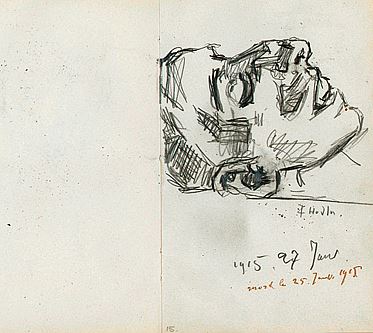 F. Hodler.
1915. 27 Janv.
mort le 25. Janv. 1915
15.